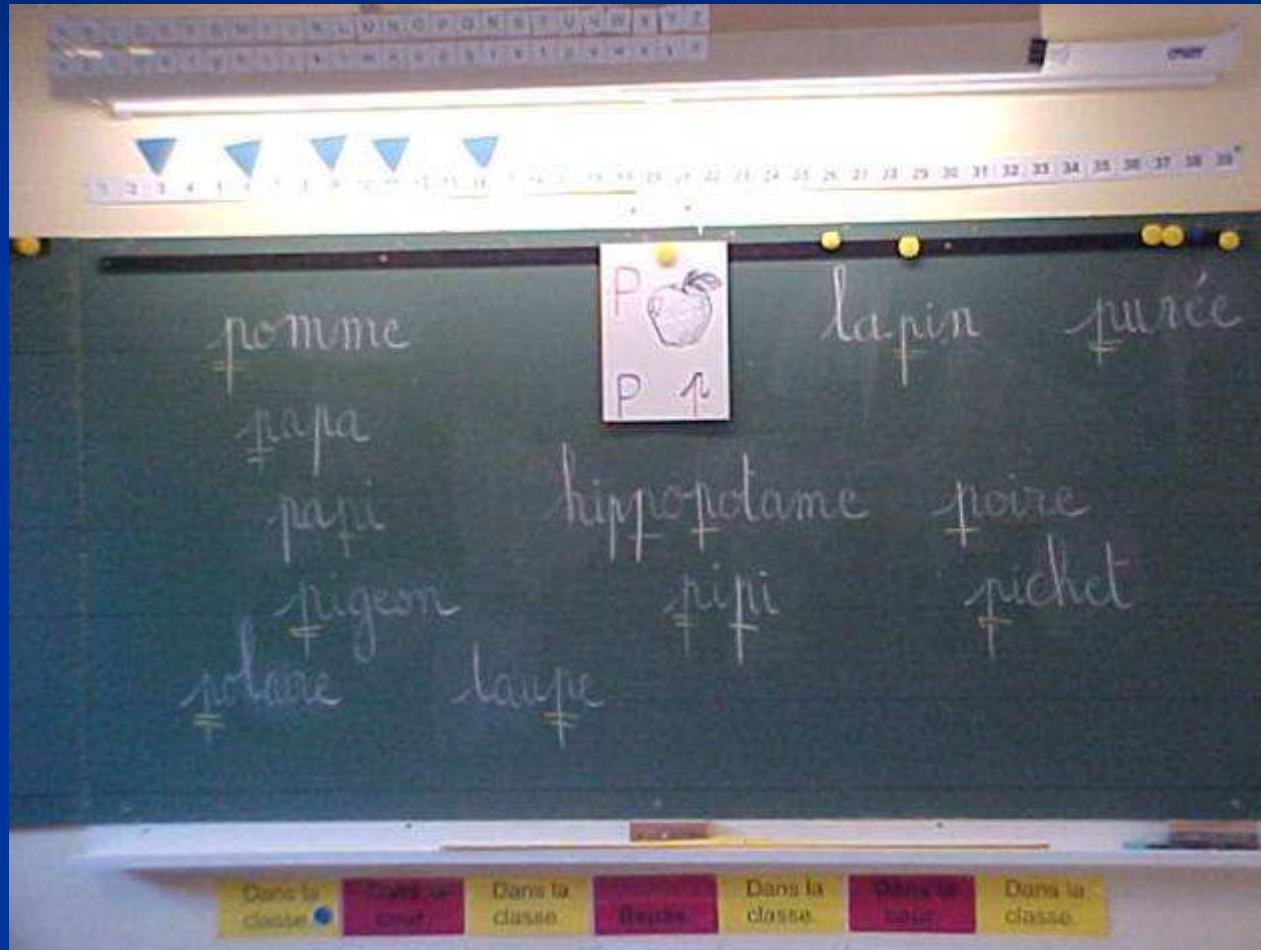 A B C D E F G H I J K L M N O P Q R S T U V W X Y Z
a b c d e f g h i j k l m n o p q r s t u v w x y z
1 2 3 4 5 6 7 8 9 10 11 12 13 14 19 20 21 22 23 24 25 26 27 28 29 30 31 32 33 34 35 36 37 38 39
P
P p
pomme lapin purée
papa
papi hippopotame poire
pigeon pipi pichet
polaire taupe
Dans la classe.
Dans la cour.
Dans la classe.
Dans la classe.
Dans la cour.
Dans la classe.